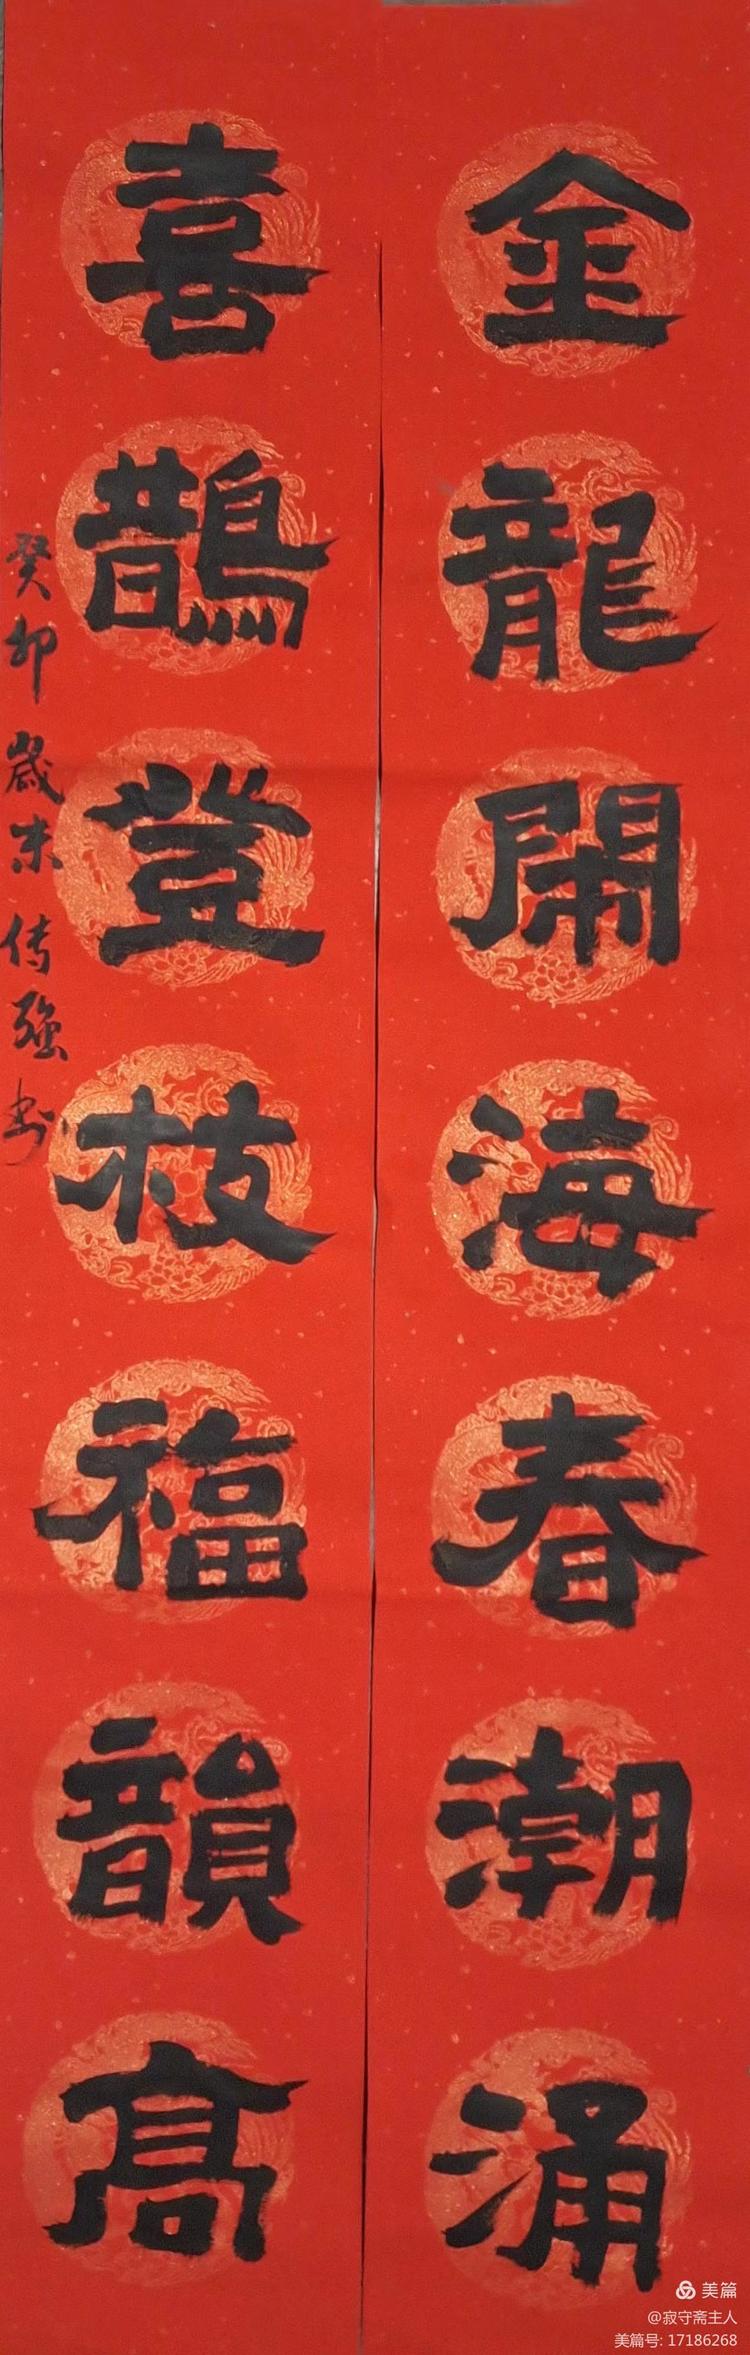 金龍鬧海春潮涌
喜鵲登枝福韻高
癸卯歲末传强书
美篇
@寂守斋主人
美篇号: 17186268